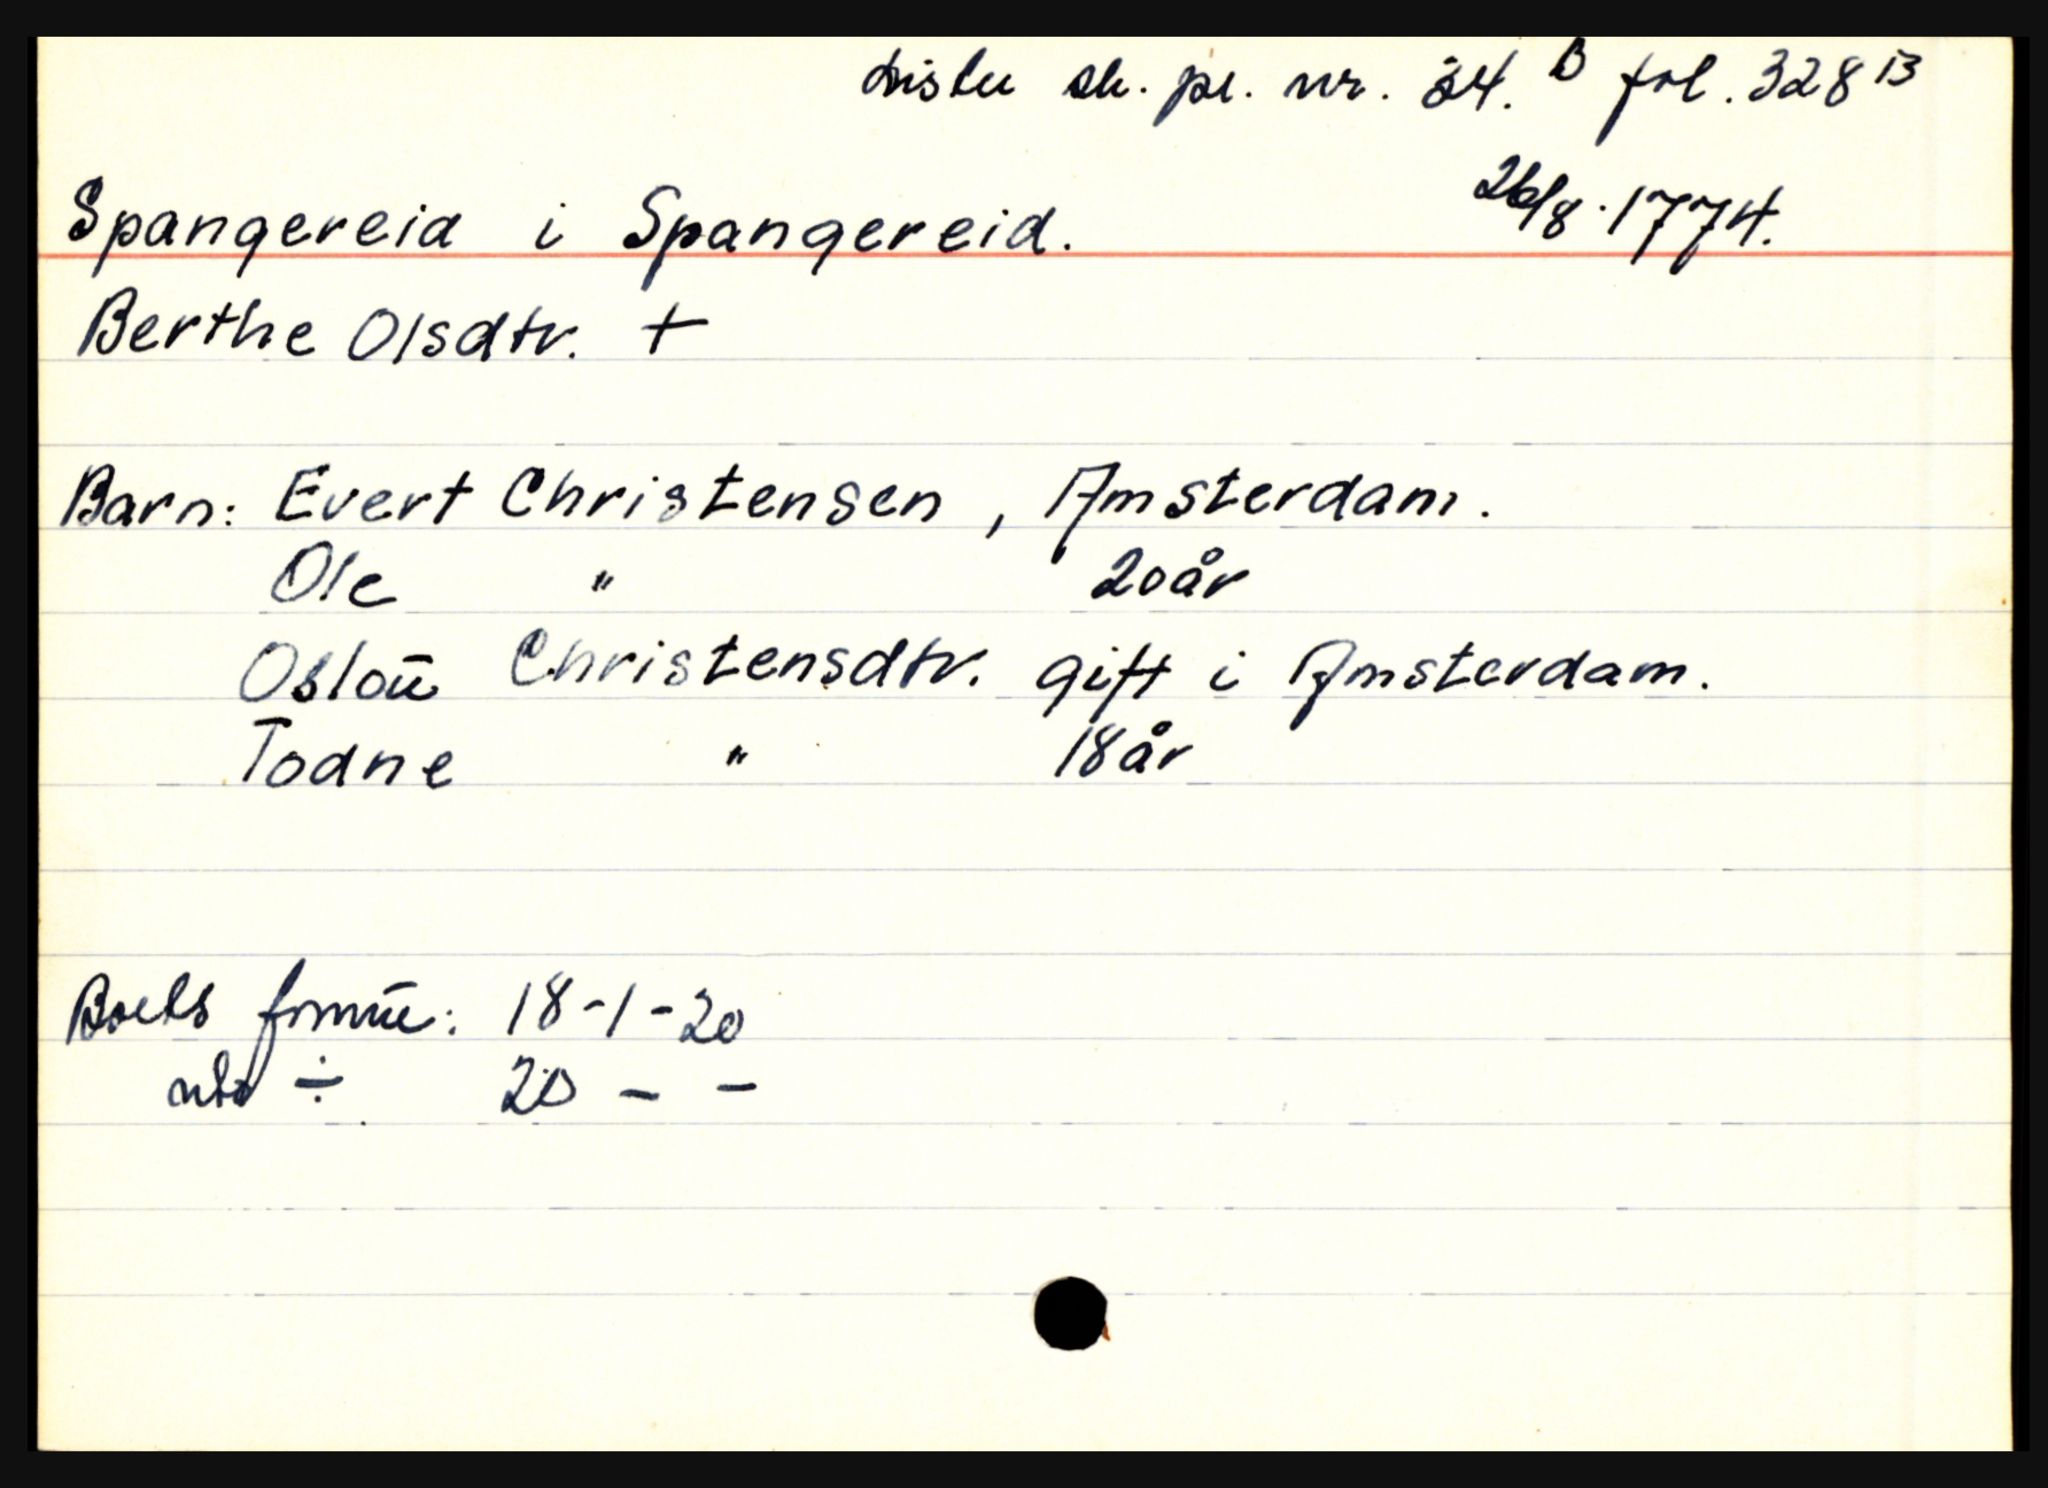 Lister sk. pr. nr. 34. B fol. 328 B
26/8.1774.
Spangereid i Spangereid.
Berthe Olsdtr. +
Barn: Evert Christensen, Amsterdam.
Ole " 20 år
Oslou Christensdtr. gift i Amsterdam.
Todne " 18 år
Boets formue: 18-1-20
nto ÷ 20 - -